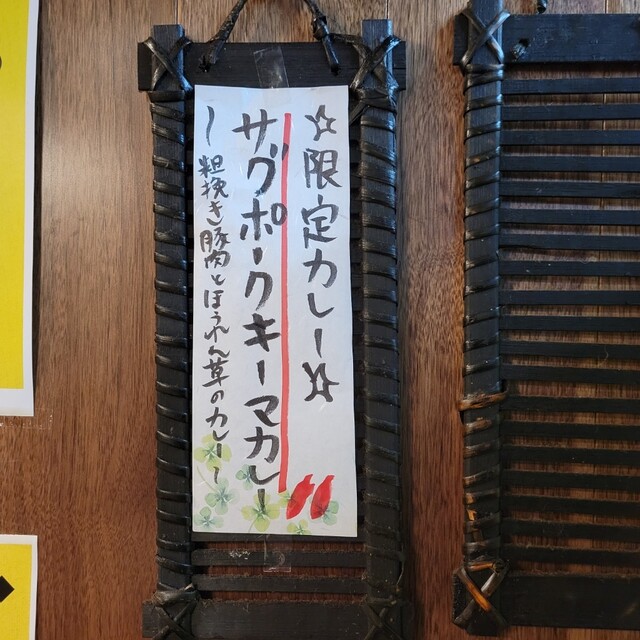 ☆限定カレー☆
サグポークキーマカレー
〜粗挽き豚肉とほうれん草のカレー〜